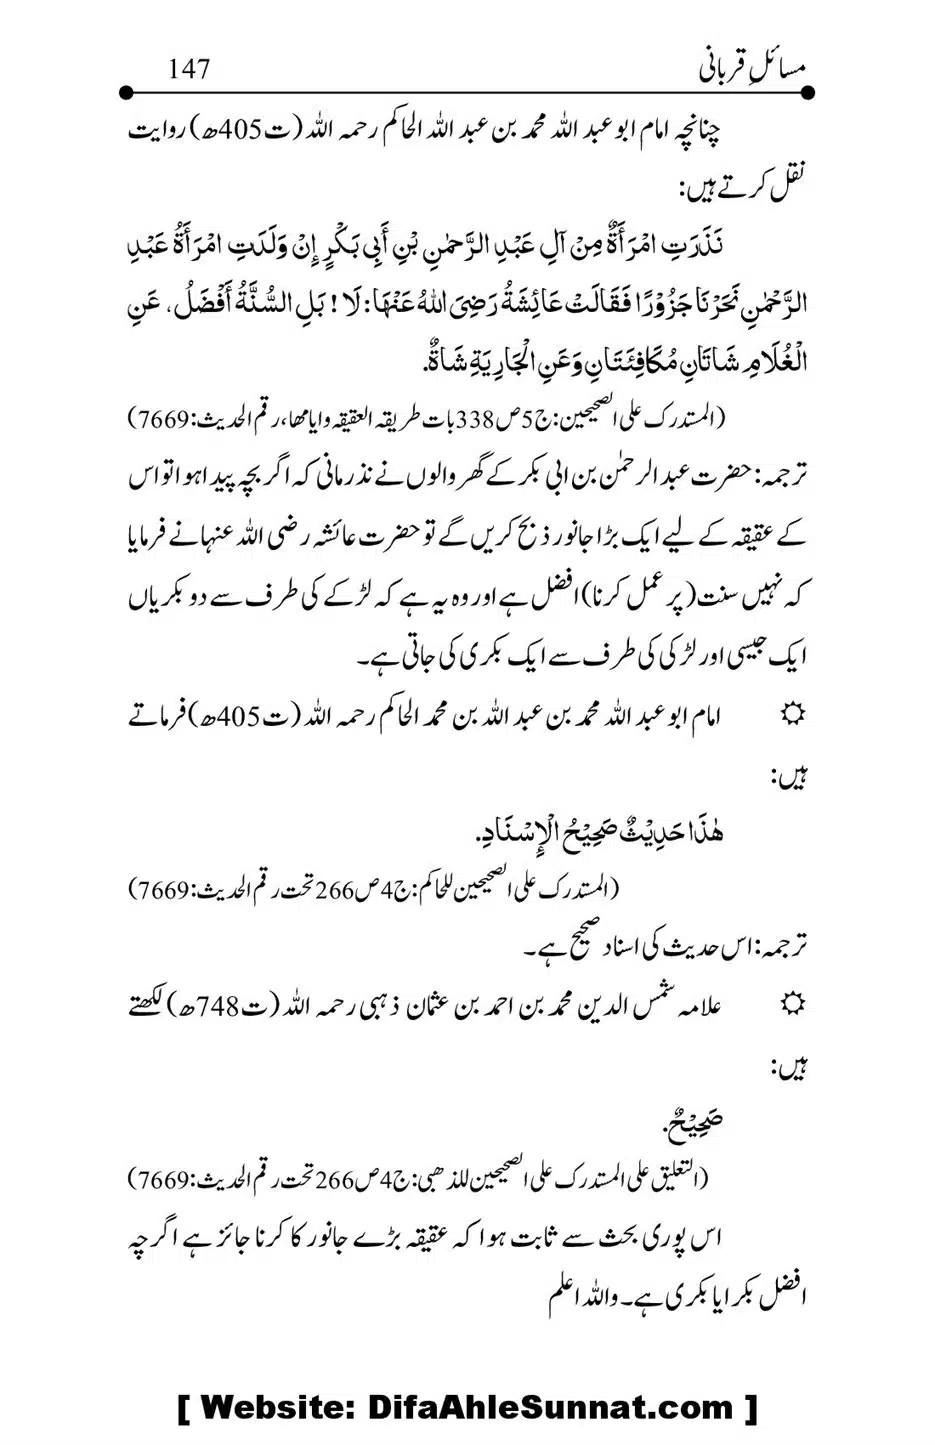 مسائلِ قربانی 147
چنانچہ امام ابو عبد اللہ محمد بن عبد اللہ الحاکم رحمہ اللہ (ت405ھ) روایت
نقل کرتے ہیں:
نَذَرَتِ امْرَأَةٌ مِنْ آلِ عَبْدِ الرَّحمٰنِ بْنِ أَبِي بَكْرٍ إِنْ وَلَدَتِ امْرَأَةُ عَبْدِ
الرَّحْمٰنِ نَحَرْنَا جَزُوْرًا فَقَالَتْ عَائِشَةُ رَضِيَ اللهُ عَنْهَا: لَا ! بَلِ السُّنَّةُ أَفْضَلُ، عَنِ
الْغُلَامِ شَاتَانِ مُكَافِئَتَانِ وَعَنِ الْجَارِيَةِ شَاةٌ.
(المستدرک علی الصحیحین: ج5 ص338 بات طریقہ العقیقہ وایامھا، رقم الحدیث: 7669)
ترجمہ: حضرت عبد الرحمٰن بن ابی بکر کے گھر والوں نے نذر مانی کہ اگر بچہ پیدا ہوا تو اس
کے عقیقہ کے لیے ایک بڑا جانور ذبح کریں گے تو حضرت عائشہ رضی اللہ عنہا نے فرمایا
کہ نہیں سنت (پر عمل کرنا) افضل ہے اور وہ یہ ہے کہ لڑکے کی طرف سے دو بکریاں
ایک جیسی اور لڑکی کی طرف سے ایک بکری کی جاتی ہے۔
امام ابو عبد اللہ محمد بن عبد اللہ بن محمد الحاکم رحمہ اللہ (ت405ھ) فرماتے
ہیں:
هٰذَا حَدِيْثٌ صَحِيْحُ الْإِسْنَادِ.
(المستدرک علی الصحیحین للحاکم: ج4 ص266 تحت رقم الحدیث: 7669)
ترجمہ: اس حدیث کی اسناد صحیح ہے۔
علامہ شمس الدین محمد بن احمد بن عثمان ذہبی رحمہ اللہ (ت748ھ) لکھتے
ہیں:
صَحِيْحٌ.
(التعلیق علی المستدرک علی الصحیحین للذھبی: ج4 ص266 تحت رقم الحدیث: 7669)
اس پوری بحث سے ثابت ہوا کہ عقیقہ بڑے جانور کا کرنا جائز ہے اگرچہ
افضل بکرا یا بکری ہے۔ واللہ اعلم
[ Website: DifaAhleSunnat.com ]